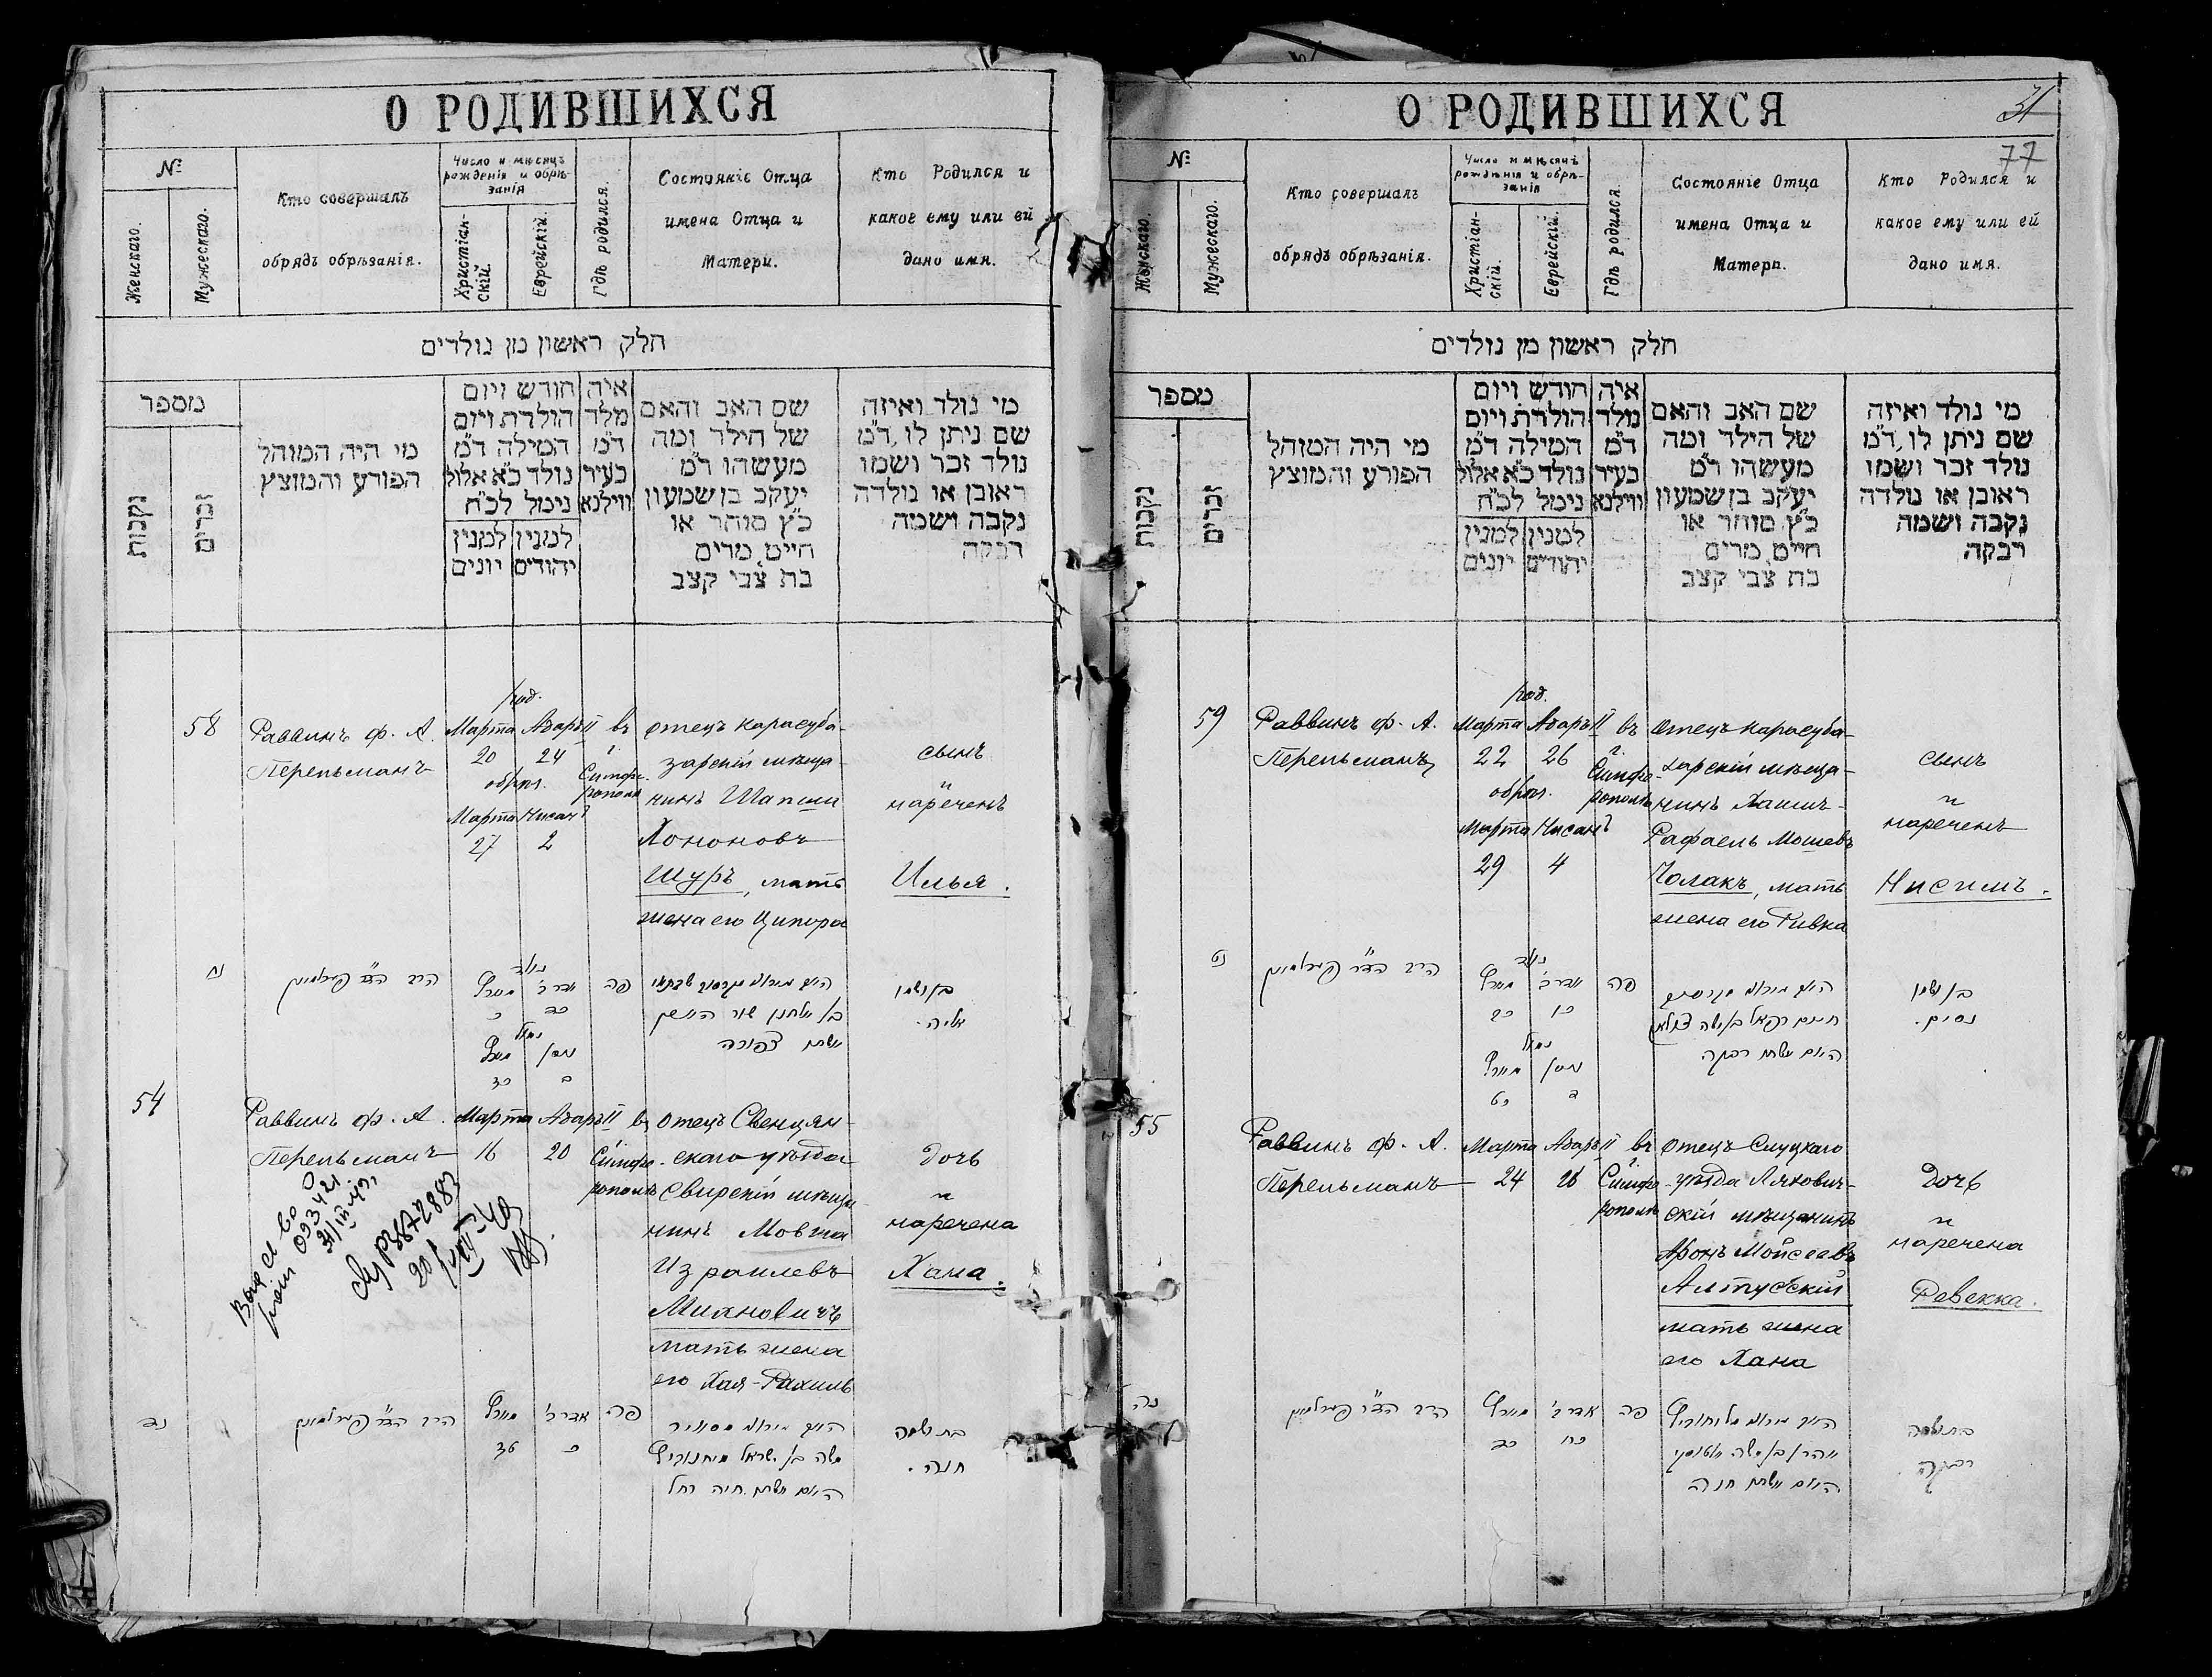 О РОДИВШИХСЯ
№
Женскаго.
Мужескаго.
Кто совершалъ
обрядъ обрѣзанія.
Число и мѣсяцъ
рожденія и обрѣ-
занія
Христіан-
скій.
Еврейскій.
Гдѣ родился.
Состояніе Отца
имена Отца и
Матери.
Кто Родился и
какое ему или ей
дано имя.
חלק ראשון מן נולדים
מספר
נקבות
זכרים
מי היה המוהל
הפורע והמוצץ
חודש ויום
הולדת ויום
המילה ד״מ
נולד כ״א אלול
נימל לכ״ח
למנין יהודים
למנין יונים
איה
מלד
ד״מ
בעיר
ווילנא
שם האב והאם
של הילד ומה
מעשהו ד״מ
יעקב בן שמעון
כ״ץ סוחר או
חייט מרים
בת צבי קצב
מי נולד ואיזה
שם ניתן לו, ד״מ
נולד זכר ושמו
ראובן או נולדה
נקבה ושמה
רבקה
58
Раввинъ Ф. А.
Перельманъ
род.
Марта Адаръ II
20 24
обрѣз.
Марта Нисанъ
27 2
въ
г.
Симфе-
рополѣ
отецъ Карасуба-
зарскій мѣща-
нинъ Шапши
Хононовъ
Шуръ, мать
жена его Ципора
сынъ
и
нареченъ
Илья.
נח
הרב הד״ר פערלמאן
נולד
אדר ב׳ מארט
כד כ
נמול
ניסן מארט
ב כז
פה
בן אלחנן שור
צפורה
בן ושמו
אליה.
54
Раввинъ Ф. А.
Перельманъ
Марта Адаръ II
16 20
въ
г.
Симфе-
рополѣ
отецъ Свенцян-
скаго уѣзда
Свирскій мѣща-
нинъ Мовша
Израилевъ
Михновичъ
мать жена
его Хая-Рахиль
дочь
и
наречена
Хана.
093421
20/VIII-49
נד
הרב הד״ר פערלמאן
אדר ב׳ מארט
כ טז
פה
משה בן ישראל מיחנאוויץ
האם אשתו חיה רחל
בת ושמה
חנה.
О РОДИВШИХСЯ
31
77
№
Женскаго.
Мужескаго.
Кто совершалъ
обрядъ обрѣзанія.
Число и мѣсяцъ
рожденія и обрѣ-
занія
Христіан-
скій.
Еврейскій.
Гдѣ родился.
Состояніе Отца
имена Отца и
Матери.
Кто Родился и
какое ему или ей
дано имя.
חלק ראשון מן נולדים
מספר
נקבות
זכרים
מי היה המוהל
הפורע והמוצץ
חודש ויום
הולדת ויום
המילה ד״מ
נולד כ״א אלול
נימל לכ״ח
למנין יהודים
למנין יונים
איה
מלד
ד״מ
בעיר
ווילנא
שם האב והאם
של הילד ומה
מעשהו ד״מ
יעקב בן שמעון
כ״ץ סוחר או
חייט מרים
בת צבי קצב
מי נולד ואיזה
שם ניתן לו, ד״מ
נולד זכר ושמו
ראובן או נולדה
נקבה ושמה
רבקה
59
Раввинъ Ф. А.
Перельманъ
род.
Марта Адаръ II
22 26
обрѣз.
Марта Нисанъ
29 4
въ
г.
Симфе-
рополѣ
отецъ Карасуба-
зарскій мѣща-
нинъ Хаимъ-
Рафаель Мошевъ
Чолакъ, мать
жена его Ривка
сынъ
и
нареченъ
Нисимъ.
נט
הרב הד״ר פערלמאן
נולד
אדר ב׳ מארט
כו כב
נמול
ניסן מארט
ד כט
פה
חיים רפאל בן משה
האם אשתו רבקה
בן ושמו
נסים.
55
Раввинъ Ф. А.
Перельманъ
Марта Адаръ II
24 28
въ
г.
Симфе-
рополѣ
отецъ Слуцкаго
уѣзда Ляхович-
скій мѣщанинъ
Аронъ Мойсеевъ
Алтусскій
мать жена
его Хана
дочь
и
наречена
Ревекка.
נה
הרב הד״ר פערלמאן
אדר ב׳ מארט
כח כד
פה
אהרן בן משה אלטוסקי
האם אשתו חנה
בת ושמה
רבקה.